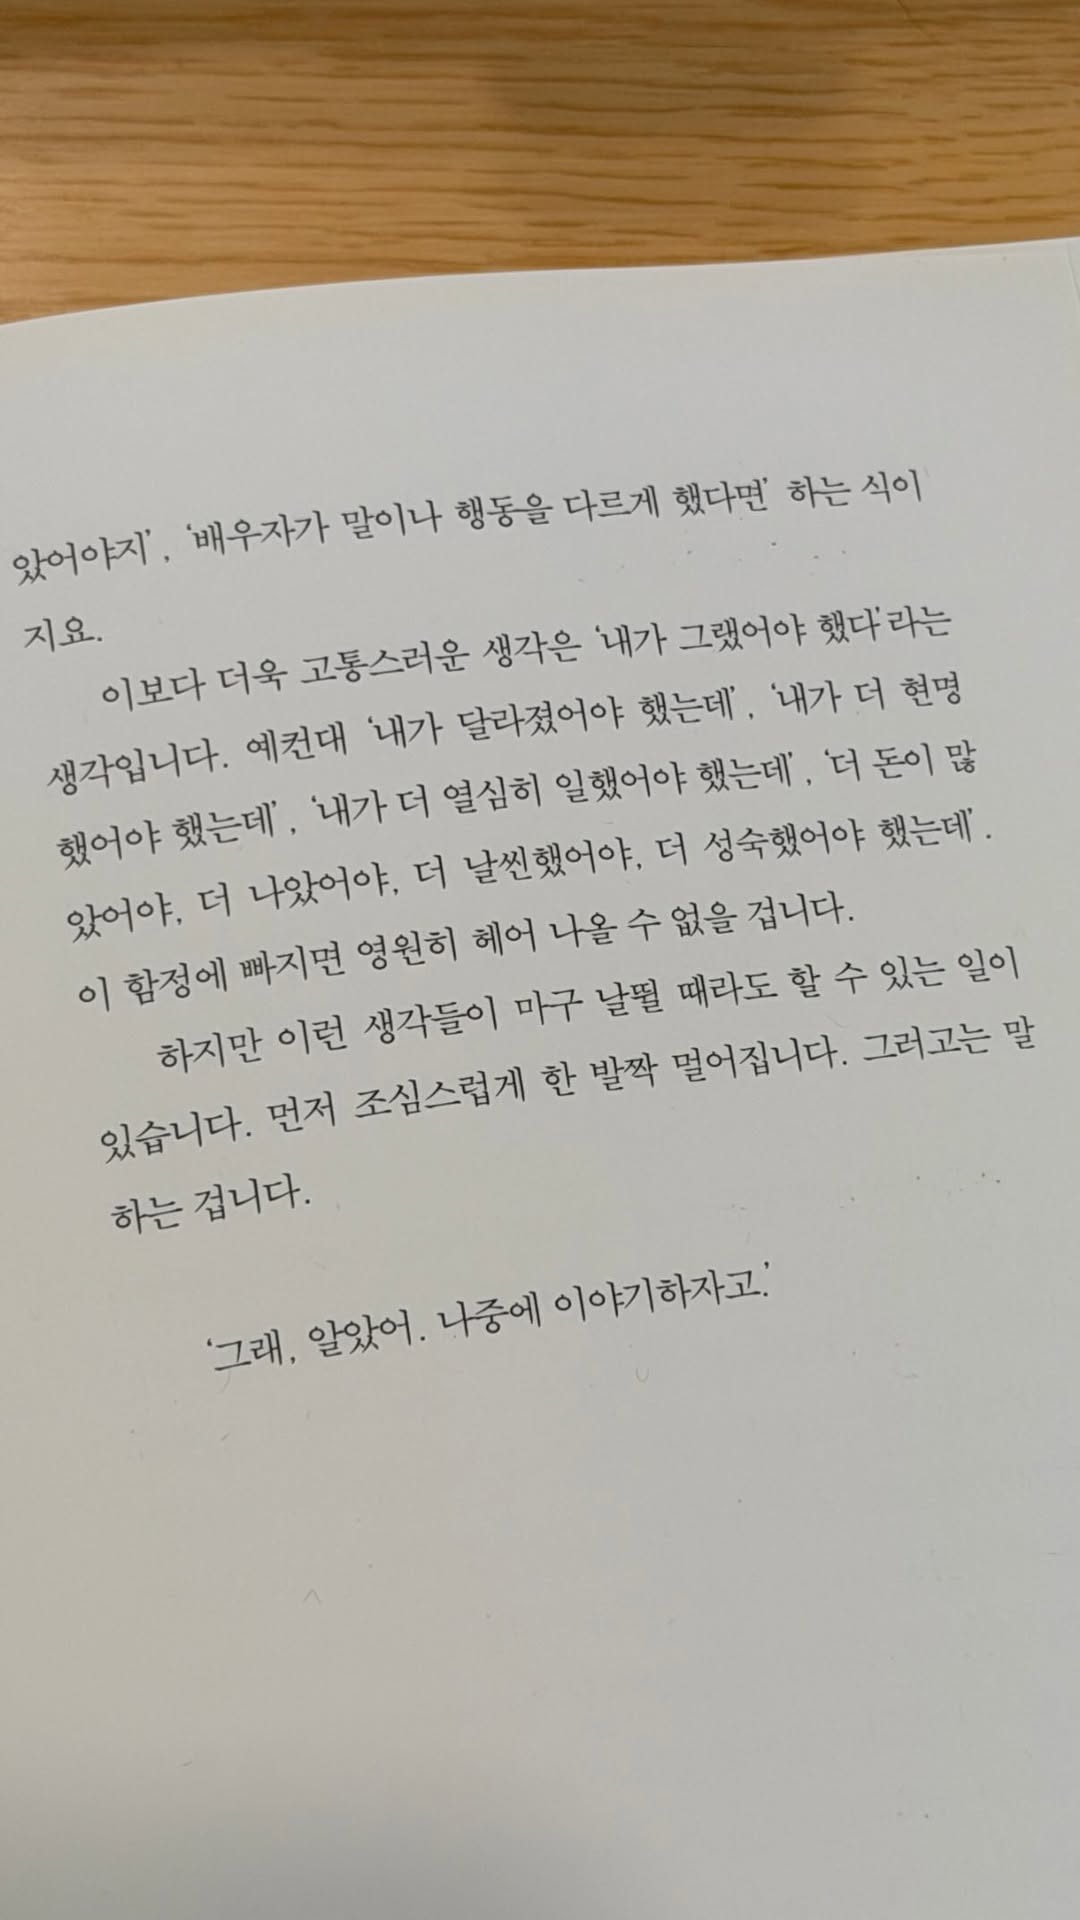 았어야지', '배우자가 말이나 행동을 다르게 했다면' 하는 식이
지요.
이보다 더욱 고통스러운 생각은 '내가 그랬어야 했다'라는
생각입니다. 예컨대 '내가 달라졌어야 했는데', '내가 더 현명
했어야 했는데', '내가 더 열심히 일했어야 했는데', '더 돈이 많
았어야, 더 나았어야, 더 날씬했어야, 더 성숙했어야 했는데'.
이 함정에 빠지면 영원히 헤어 나올 수 없을 겁니다.
하지만 이런 생각들이 마구 날뛸 때라도 할 수 있는 일이
있습니다. 먼저 조심스럽게 한 발짝 멀어집니다. 그러고는 말
하는 겁니다.
'그래, 알았어. 나중에 이야기하자고.'